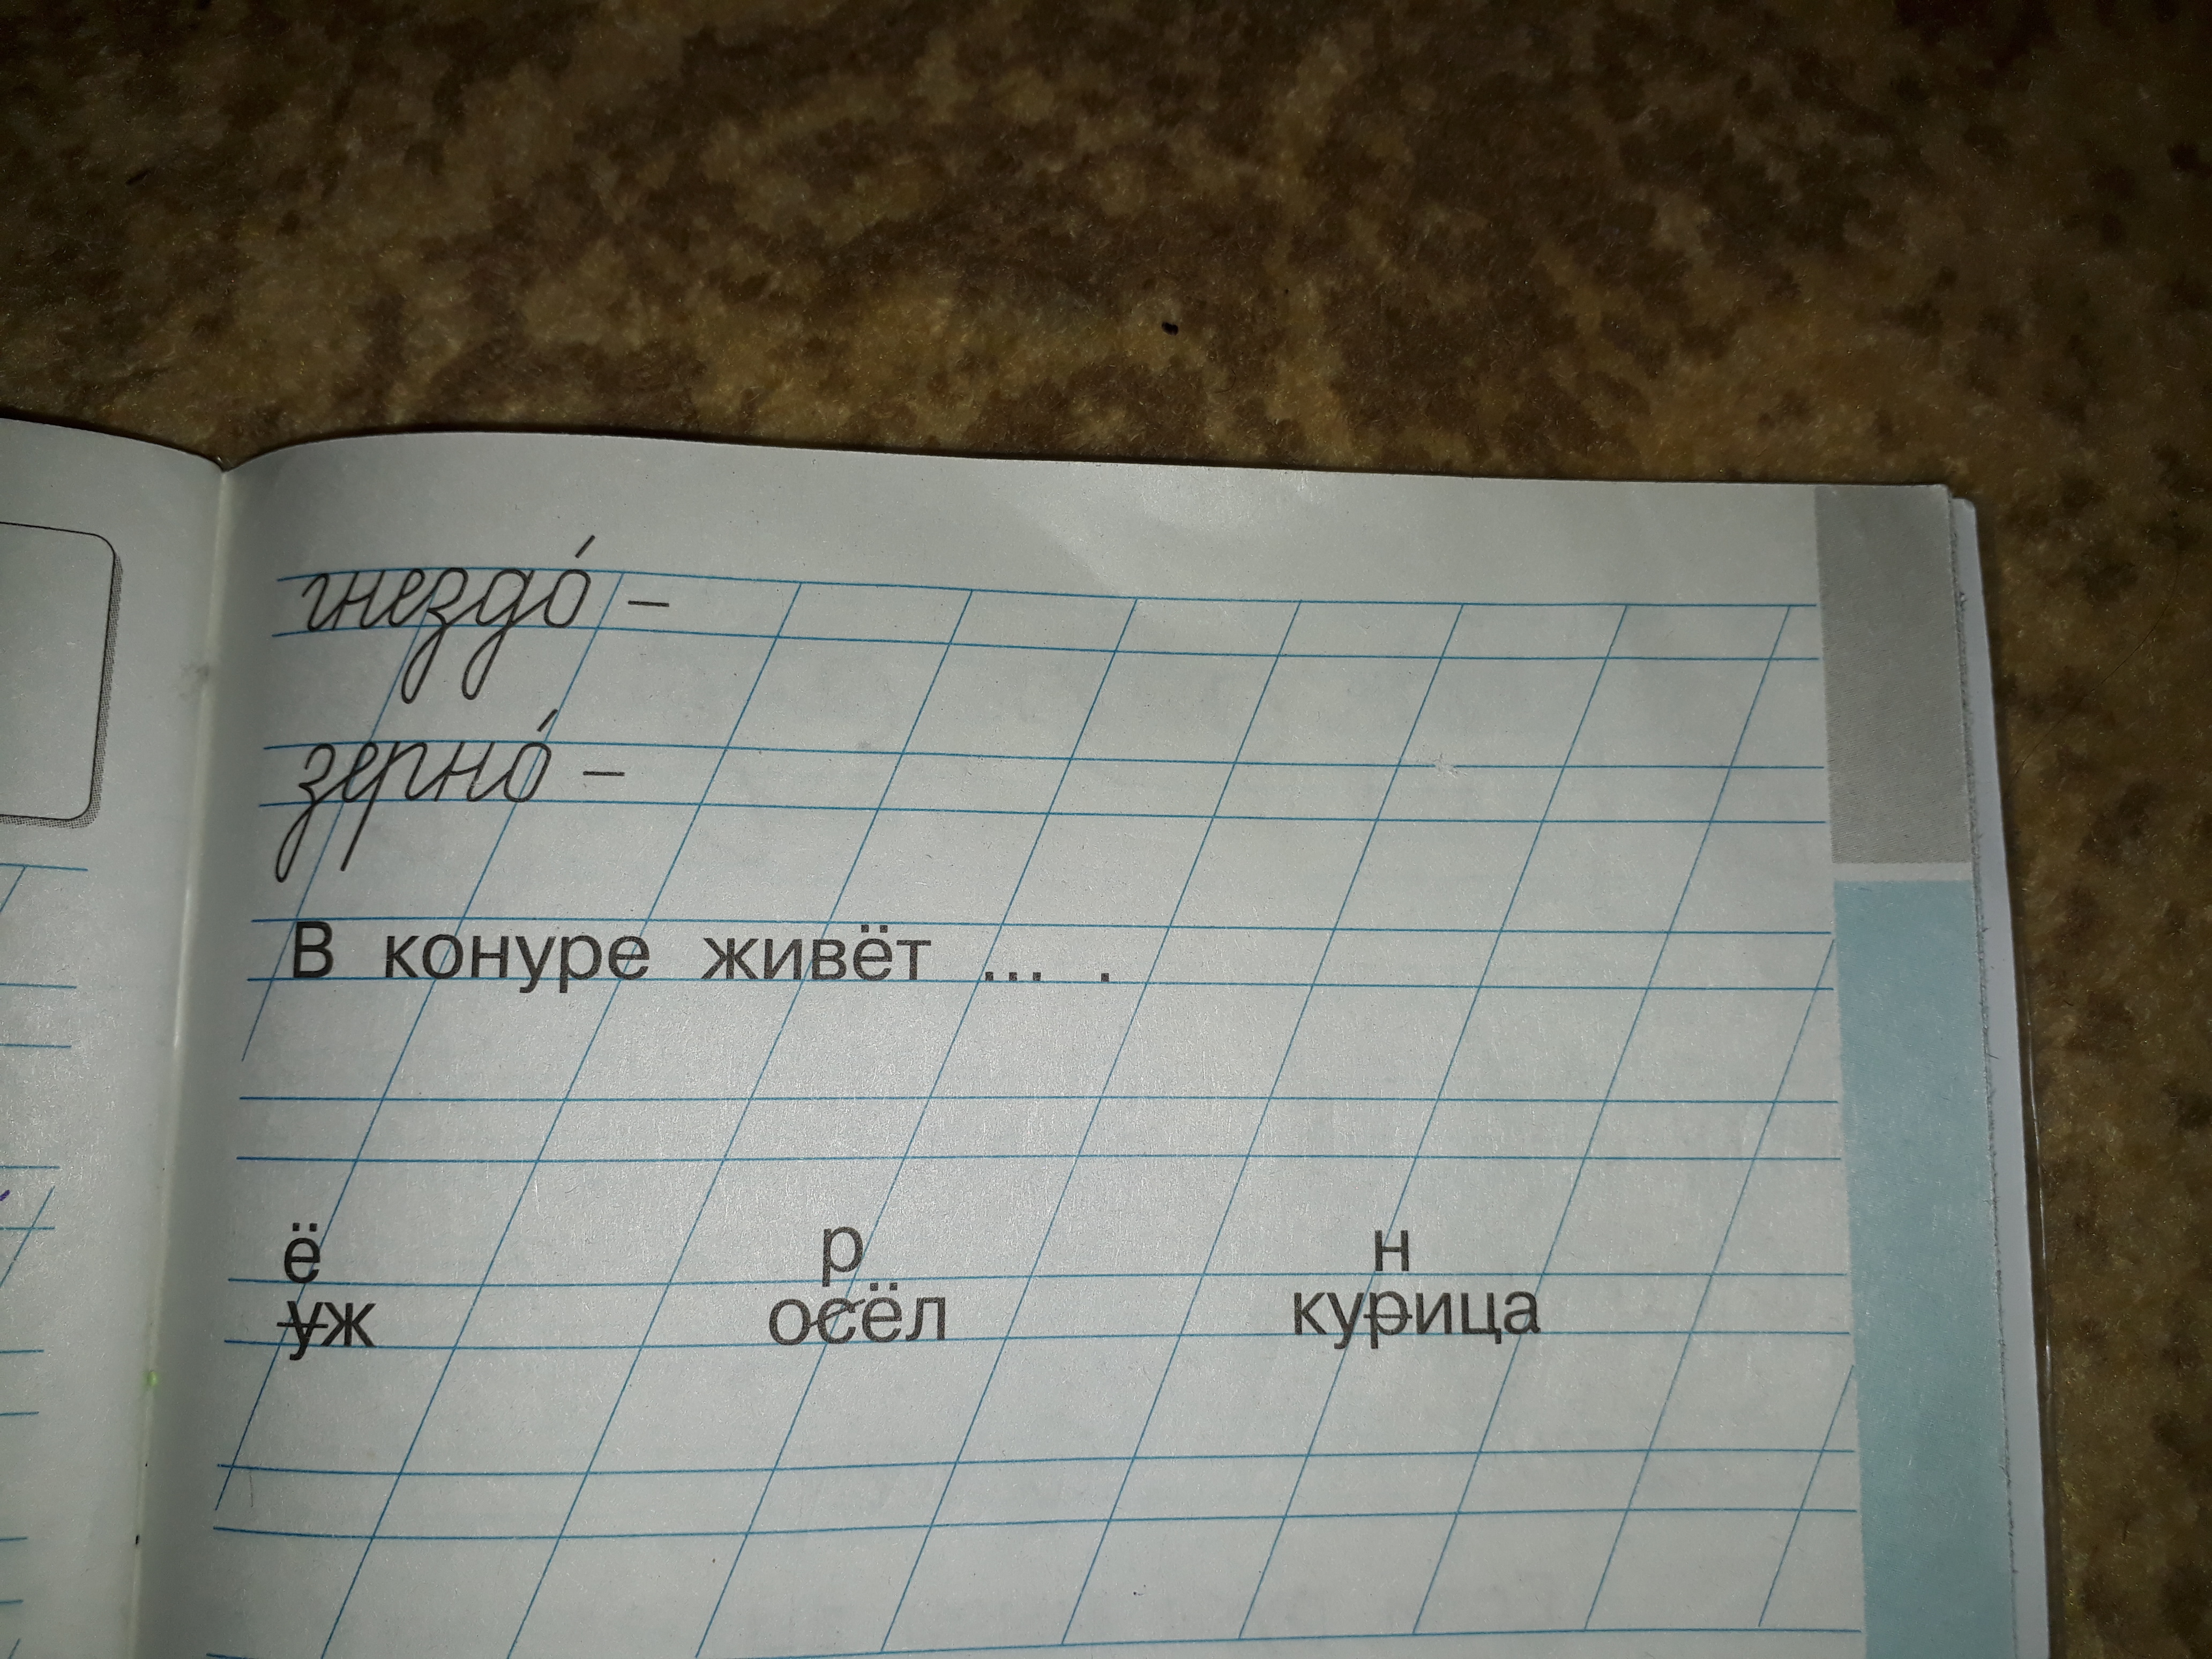 гнездо́ –
зерно́ –
В конуре живёт ... .
ё р н
уж осёл курица